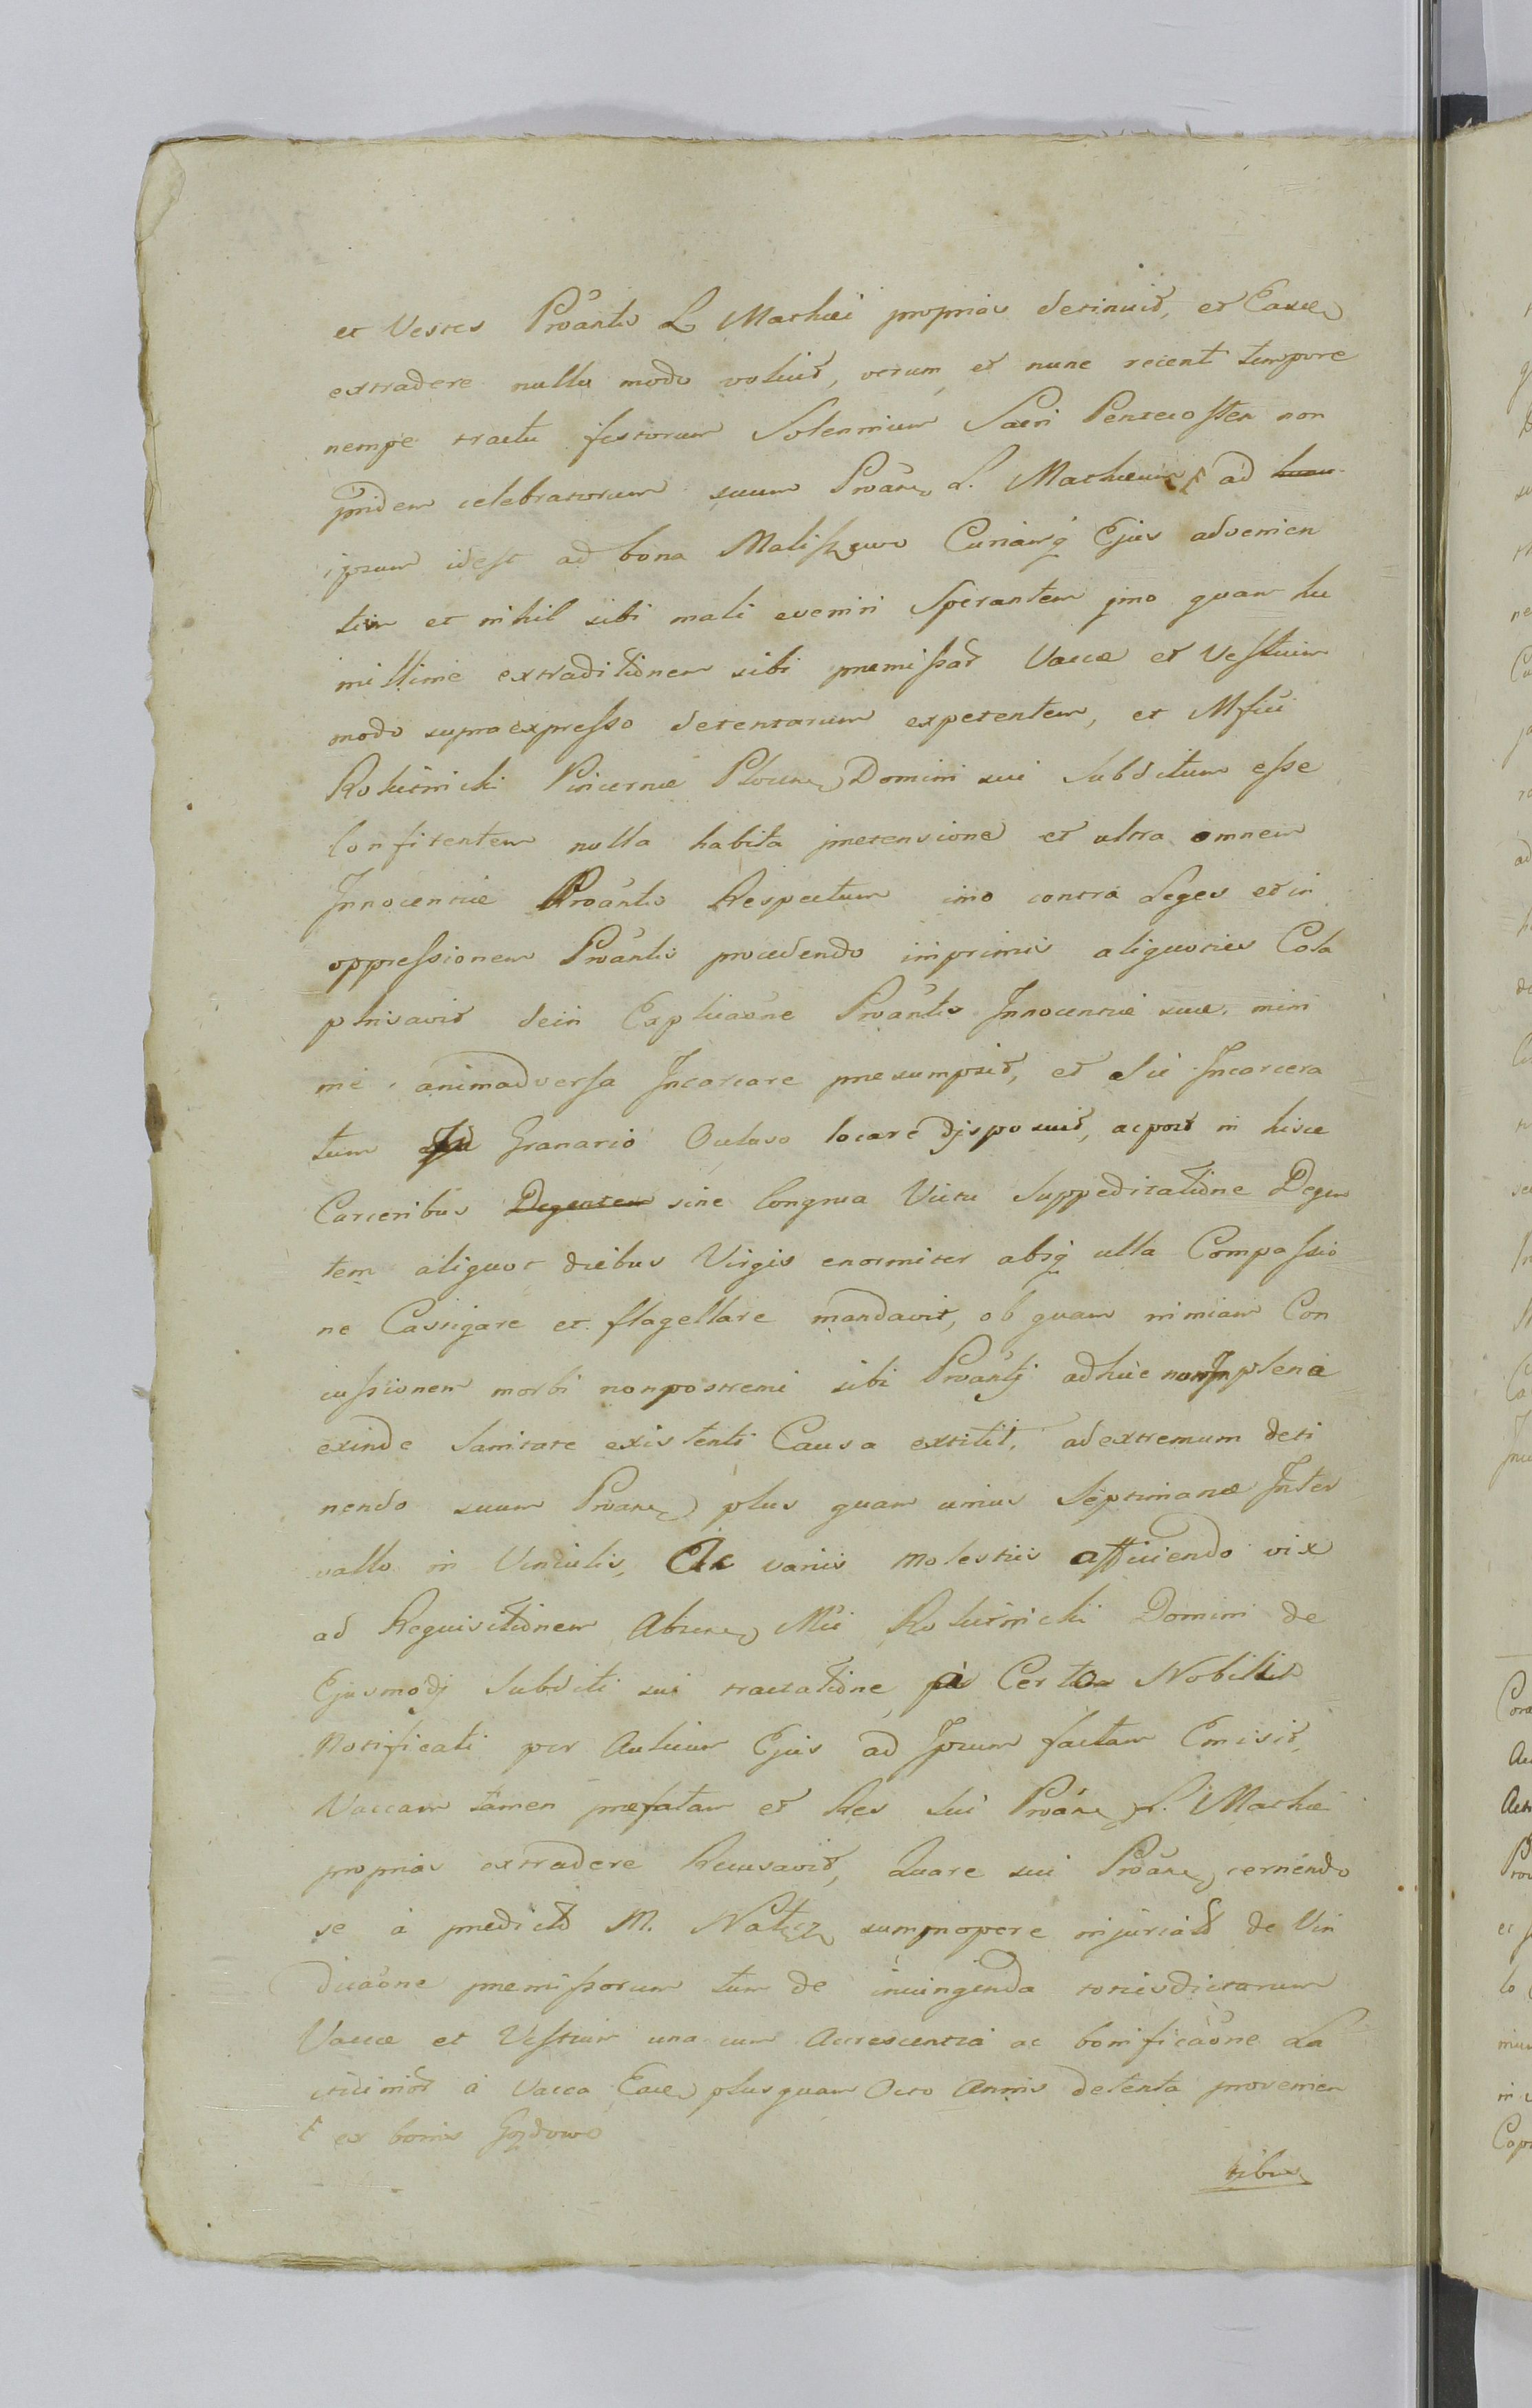 et Vestes Proãntis L. Mathæi proprias detinuit, et Easdem
extradere nullo modo voluit, verum et nunc recent tempore
nempe tractu festorum Solennium Sacri Pentecosten non
pridem celebratorum suum Proãn L. Mathæum ⸸ ad
ipsum idest ad bona Maliszewo Curiamq Ejus advenien
tem et nihil sibi mali eveniri Sperantem imo quam hu
millime extraditionem sibi premissar Vaccæ et Vestium
modo supra expresso detentarum expetentem, et Mfici
Rokitnicki Pincernæ Plocen Domini sui Subditum esse
Confitentem nulla habita pretensione et ultra omnem
Innocentiæ Proãntis Respectum imo contra Leges et in
oppressionem Proãntis procedendo imprimis aliquoties Cola
phisavit dein Explicaõne Proãntis Innocentiæ suæ mini
me animadversa Incarcare presumpsit, et Sic Incarcera
tum Granario Occluso locare disposuit, ac post in hisce
Carceribus Degentem sine Congrua Victu Suppeditatione Degen
tem aliquot diebus Virgis enormiter absq ulla Compassio
ne Castigare et flagellare mandavit, ob quam nimiam Con
cussionem morbi non postremi sibi Proãnti adhuc non In plena
exinde Sanitate existenti Causa extitit, ad extremum deti
nendo suum Proãn plus quam unius Septimanæ Inter
vallo in Vinculis, Ac variis molestiis afficiendo vix
ad Requisitionem Mci Rokitnicki Domini de
Ejusmodi Subditi sui tractatione à Certo Nobili
Notificati per Ejus ad Ipsum factam Emisit,
Vaccam tamen præfatam et Res sui Proãn L. Mathæ
proprias extradere Recusavit, Quare sui Proãn cernendo
se à predicto M. summopere injuriat de Vin
dicaõne premissorum tum de toties dictarum
Vaccæ et Vestium una cum Accrescentia ac bonificaõne La
cticinior à Vacca Eadem plusquam Octo Annis detenta provenien
⸸ ex bonis Gozdowo
tibus